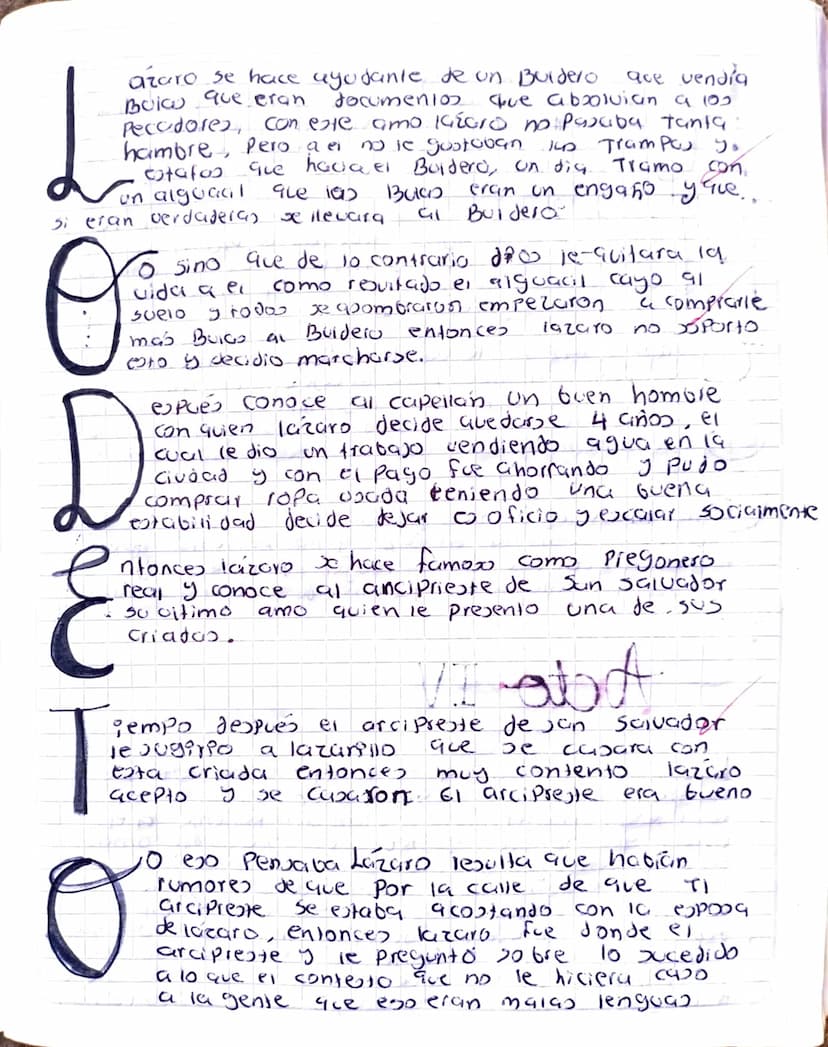 Lázaro se hace ayudante de un Buldero que vendía
Bulas que eran documentos que absolvian a los
Pecadores, con este amo lázaro no Pasaba tanta
hambre, Pero a el no le gustaban las Trampas y
estafas que hacia el Buldero, un dia Tramo con
un alguacil que las Bulas eran un engaño y que
si eran verdaderas se llevara al Buldero
O sino que de lo contrario dios le quitara la
vida a el como resultado el alguacil cayo al
suelo y todos se asombraron empezaron a comprarle
mas Bulas al Buldero entonces lazaro no soporto
esto y decidio marcharse.
Después conoce al capellán un buen hombre
con quien lázaro decide quedarse 4 años, el
cual le dio un trabajo vendiendo agua en la
ciudad y con el Pago fue ahorrando y pudo
comprar ropa usada teniendo una buena
estabilidad decide dejar es oficio y escalar socialmente
Entonces lázaro se hace famoso como Pregonero
real y conoce al anciprieste de San Salvador
su ultimo amo quien le presento una de sus
criadas.
Acto IV
Tiempo después el arcipreste de san Salvador
le sugirio a lazarillo que se casara con
esta criada entonces muy contento lazaro
acepto y se casaron. El arcipreste era bueno
O eso Pensaba Lázaro resulta que habían
rumores de que por la calle de que
arcipreste se estaba acostando con la esposa
de lázaro, entonces lazaro fue donde el
arcipreste y le preguntó sobre lo sucedido
a lo que el contesto que no le hiciera caso
a la gente que eso eran malas lenguas